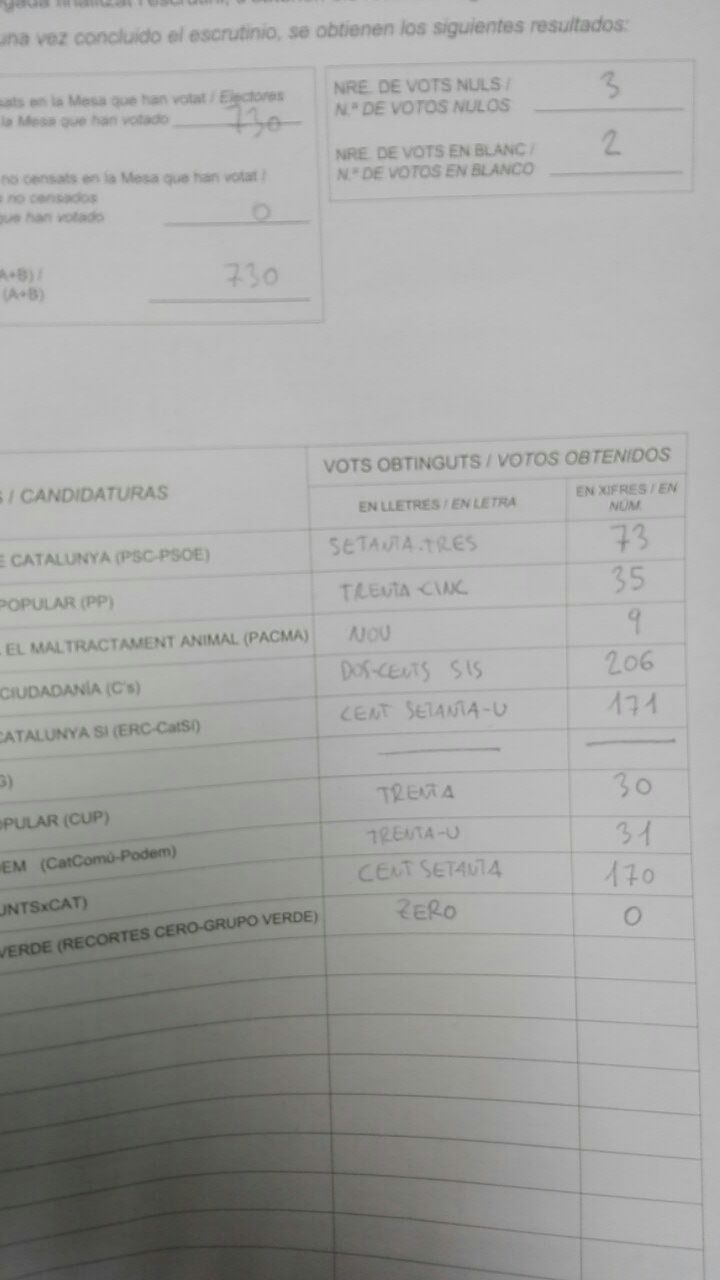 una vez concluido el escrutinio, se obtienen los siguientes resultados:
en la Mesa que han votat / Electores
la Mesa que han votado 730
no censats en la Mesa que han votat /
no censados
que han votado 0
A+B) /
(A+B) 730
NRE. DE VOTS NULS /
N.º DE VOTOS NULOS 3
NRE. DE VOTS EN BLANC /
N.º DE VOTOS EN BLANCO 2
/ CANDIDATURAS
VOTS OBTINGUTS / VOTOS OBTENIDOS
EN LLETRES / EN LETRA
EN XIFRES / EN
NÚM.
CATALUNYA (PSC-PSOE) SETANTA-TRES 73
POPULAR (PP) TRENTA-CINC 35
EL MALTRACTAMENT ANIMAL (PACMA) NOU 9
CIUDADANÍA (C's) DOS-CENTS SIS 206
CATALUNYA SI (ERC-CatSí) CENT SETANTA-U 171
G)
POPULAR (CUP) TRENTA 30
EM (CatComú-Podem) TRENTA-U 31
UNTSxCAT) CENT SETANTA 170
VERDE (RECORTES CERO-GRUPO VERDE) ZERO 0